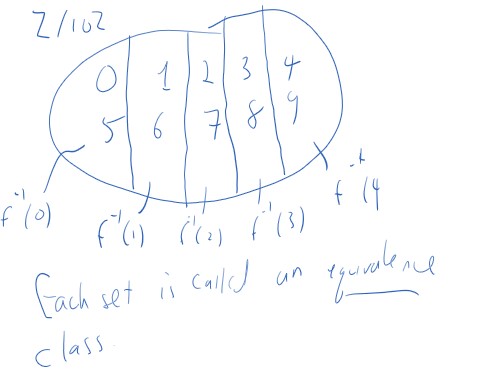 Z/10Z
0 1 2 3 4
5 6 7 8 9
f⁻¹(0)
f⁻¹(1) f⁻¹(2) f⁻¹(3) f⁻¹(4
Each set is called an equivalence
class.